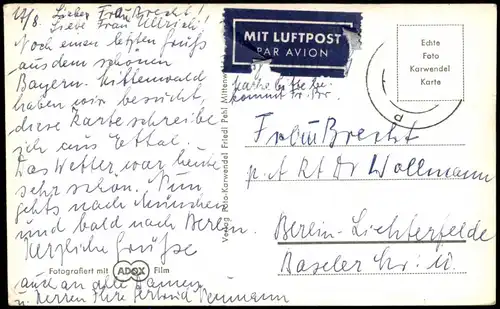 17/8. Lieber Frau Brecht!
Liebe Frau Ullrich!
Noch einen letzten Gruß
aus dem schönen
Bayern. Mittenwald
haben wir besucht,
diese Karte schreibe
ich aus Ettal.
Das Wetter war heute
sehr schön. Nun
gehts nach München
und bald nach Berlin.
Herzliche Grüße
auch an alle Damen
u. Herren Ihre Gertrud Neumann
Fotografiert mit ADOX Film
Verlag Foto-Karwendel Friedl Pehl Mittenwald
MIT LUFTPOST
PAR AVION
Karte bitte
Fr. Br.
Echte
Foto
Karwendel
Karte
Frau Brecht
Dr. Wollmann
Berlin-Lichterfelde
Baseler Str.